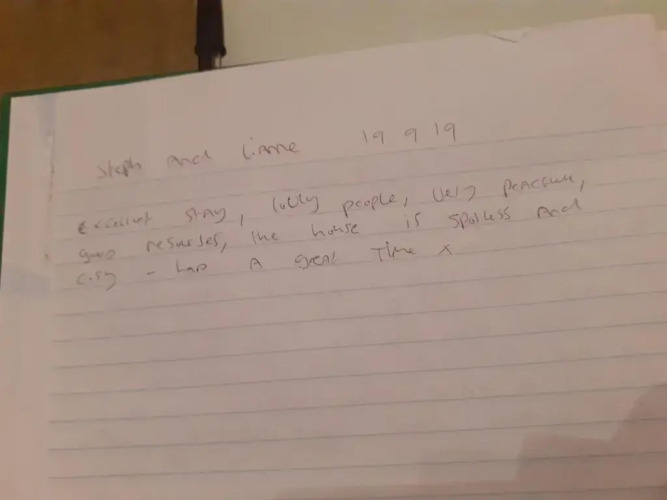 Steph and Lianne 19 9 19
Excellent stay, lovely people, very peaceful,
good resourses, the house is spotless and
cosy - had A great Time x